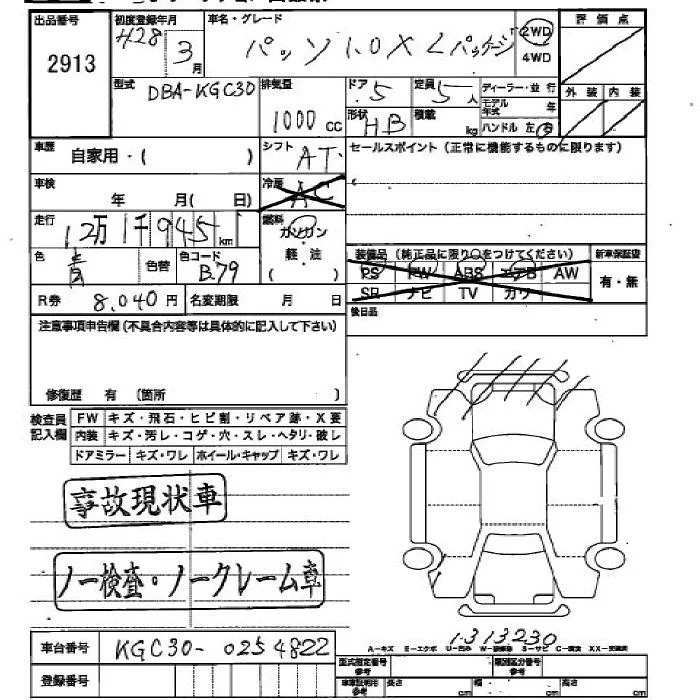 出品番号 初度登録年月 車名・グレード 評価点
2913 H28 3月 パッソ 1.0 X Lパッケージ 2WD
4WD
型式 排気量 ドア 定員 ディーラー・並行 外装 内装
DBA-KGC30 1000cc 5 5人 モデル年式 年
形状 HB 積載 kg ハンドル 左 右
車歴 自家用・( ) シフト AT セールスポイント(正常に機能するものに限ります)
車検 年 月(日) 冷房 AC
走行 12万1千945km 燃料 ガソリン
軽・油
( )
色 青 色替 色コード B79 装備品(純正品に限り○をつけてください) 新車保証書
PS PW ABS エアB AW 有・無
SR ナビ TV カワ
R券 8,040円 名変期限 月 日 後日品
注意事項申告欄(不具合内容等は具体的に記入して下さい)
修復歴 有(箇所 )
検査員記入欄 FW キズ・飛石・ヒビ割・リペア跡・X要
内装 キズ・汚レ・コゲ・穴・スレ・ヘタリ・破レ
ドアミラー キズ・ワレ ホイール・キャップ キズ・ワレ
事故現状車
ノー検査・ノークレーム車
1313230
車台番号 KGC30-0254822
A-キズ E-エクボ U-凹み
登録番号 型式指定番号 参考 類別区分番号 参考
車車証明用 参考 長さ cm 幅 cm 高さ cm